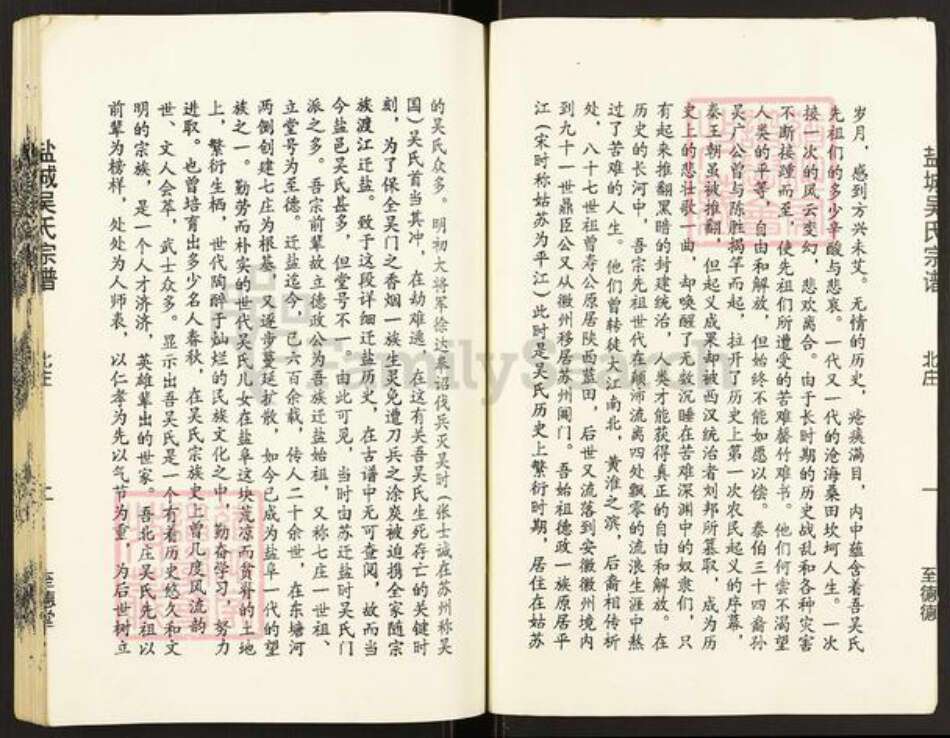 盐城吴氏宗谱
北庄
一
至德
岁月，感到方兴未艾。无情的历史，疮痍满目，内中蕴含着吾吴氏
先祖们的多少辛酸与悲哀。一代又一代的沧海桑田坎坷人生。一次
接一次的风云变幻，悲欢离合。由于长时期的历史战乱和各种灾害
不断接踵而至，使先祖们所遭受的苦难罄竹难书。他们何尝不渴望
人类的平等，自由和解放，但始终不能如愿以偿。泰伯三十四裔孙
吴广公曾与陈胜揭竿而起，拉开了历史上第一次农民起义的序幕，
秦王朝虽被推翻，但起义成果却被西汉统治者刘邦所篡取，成为历
史上的悲壮歌一曲，却唤醒了无数沉睡在苦难深渊中的奴隶们，只
有起来推翻黑暗的封建统治，人类才能获得真正的自由和解放。在
历史的长河中，吾宗先祖世代在颠沛流离四处飘零的流浪生涯中熬
过了苦难的人生。他们曾转徒大江南北，黄淮之滨，后裔相传析
处，八十七世祖曾寿公原居陕西蓝田，后世又流落到安徽徽州境内
到九十一世鼎臣公又从徽州移居苏州阊门。吾始祖德政一族原居平
江（宋时称姑苏为平江）此时是吴氏历史上繁衍时期，居住在姑苏
的吴氏众多。明初大将军徐达奉诏伐兵灭吴时（张士诚在苏州称吴
国）吴氏首当其冲，在劫难逃。在这有关吾吴氏生死存亡的关键时
刻，为了保全吴门之香烟一族生灵免遭刀兵之涂炭被迫携全家随宗
族渡江迁盐。致于这段详细迁盐历史，在古谱中无可查阅。故而当
今盐邑吴氏甚多，但堂号不一，由此可见，当时由苏迁盐时吴氏门
派之多。吾宗前辈故立德政公为吾族迁盐始祖，又称七庄一世祖、
立堂号为至德。迁盐迄今，已六百余载，传人二十余世，在东塘河
两侧创建七庄为根基，又逐步蔓延扩散，如今已成为盐阜一代的望
族之一。勤劳而朴实的世代吴氏儿女在盐阜这块荒凉而贫脊的土地
上，繁衍生栖，世代陶醉于灿烂的民族文化之中，勤奋学习，努力
进取。也曾培育出多少名人春秋，在吴氏宗族史上曾几度风流韵
世、文人会萃，武士众多。显示出吾吴氏是一个有着历史悠久和文
明的宗族，是一个人才济济，英雄辈出的世家。吾北庄吴氏先祖以
前辈为榜样，处处为人师表，以仁孝为先以气节为重，为后世树立
盐城吴氏宗谱
北庄
至德堂
FamilySearch